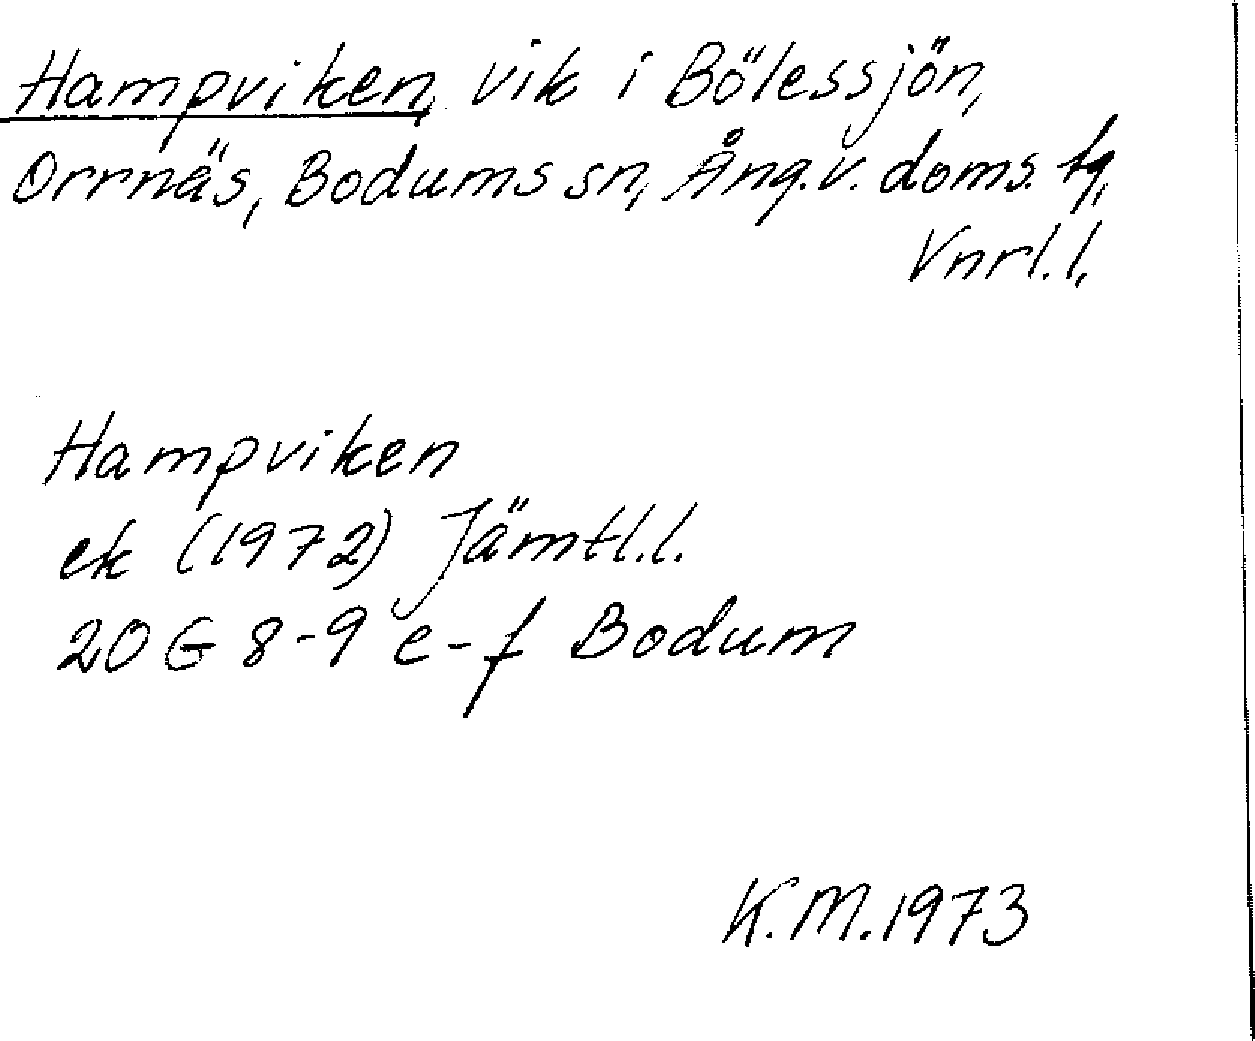 Hampviken, vik i Bölessjön,
Orrnäs, Bodums sn, Ång.v. doms. tg,
Vnrl.l.
Hampviken
ek (1972) Jämtl.l.
20 G 8-9 e-f Bodum
K.M. 1973